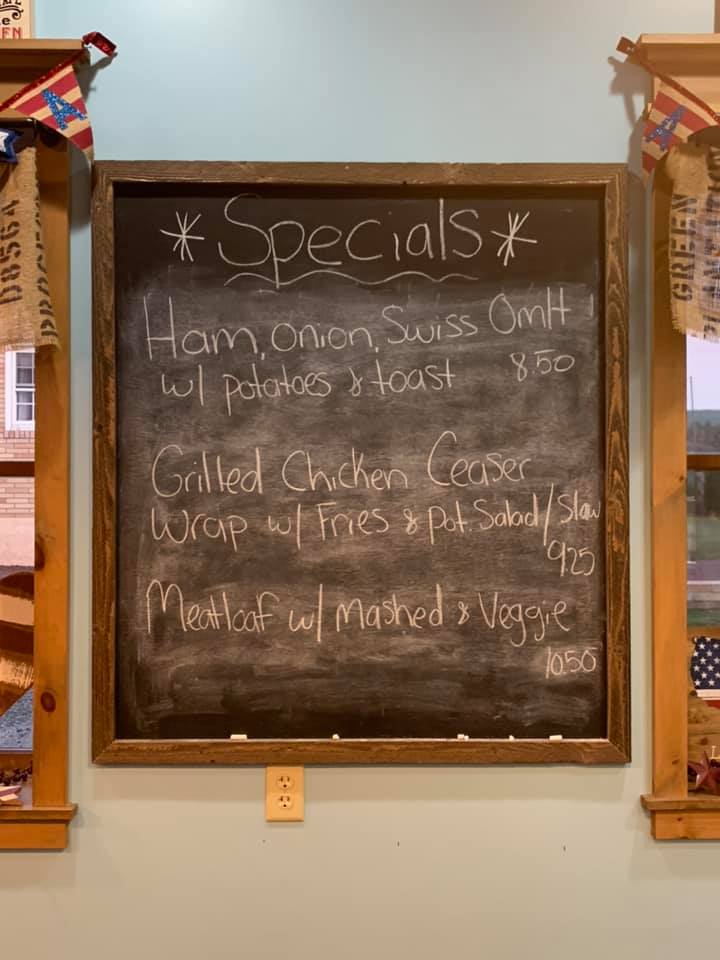 EN
A
A
D856N
GREEN
* Specials *
Ham, onion, Swiss Omlt
w/ potatoes & toast 8.50
Grilled Chicken Ceaser
Wrap w/ Fries & Pot. Salad/Slaw
9.25
Meatloaf w/ Mashed & Veggie
10.50